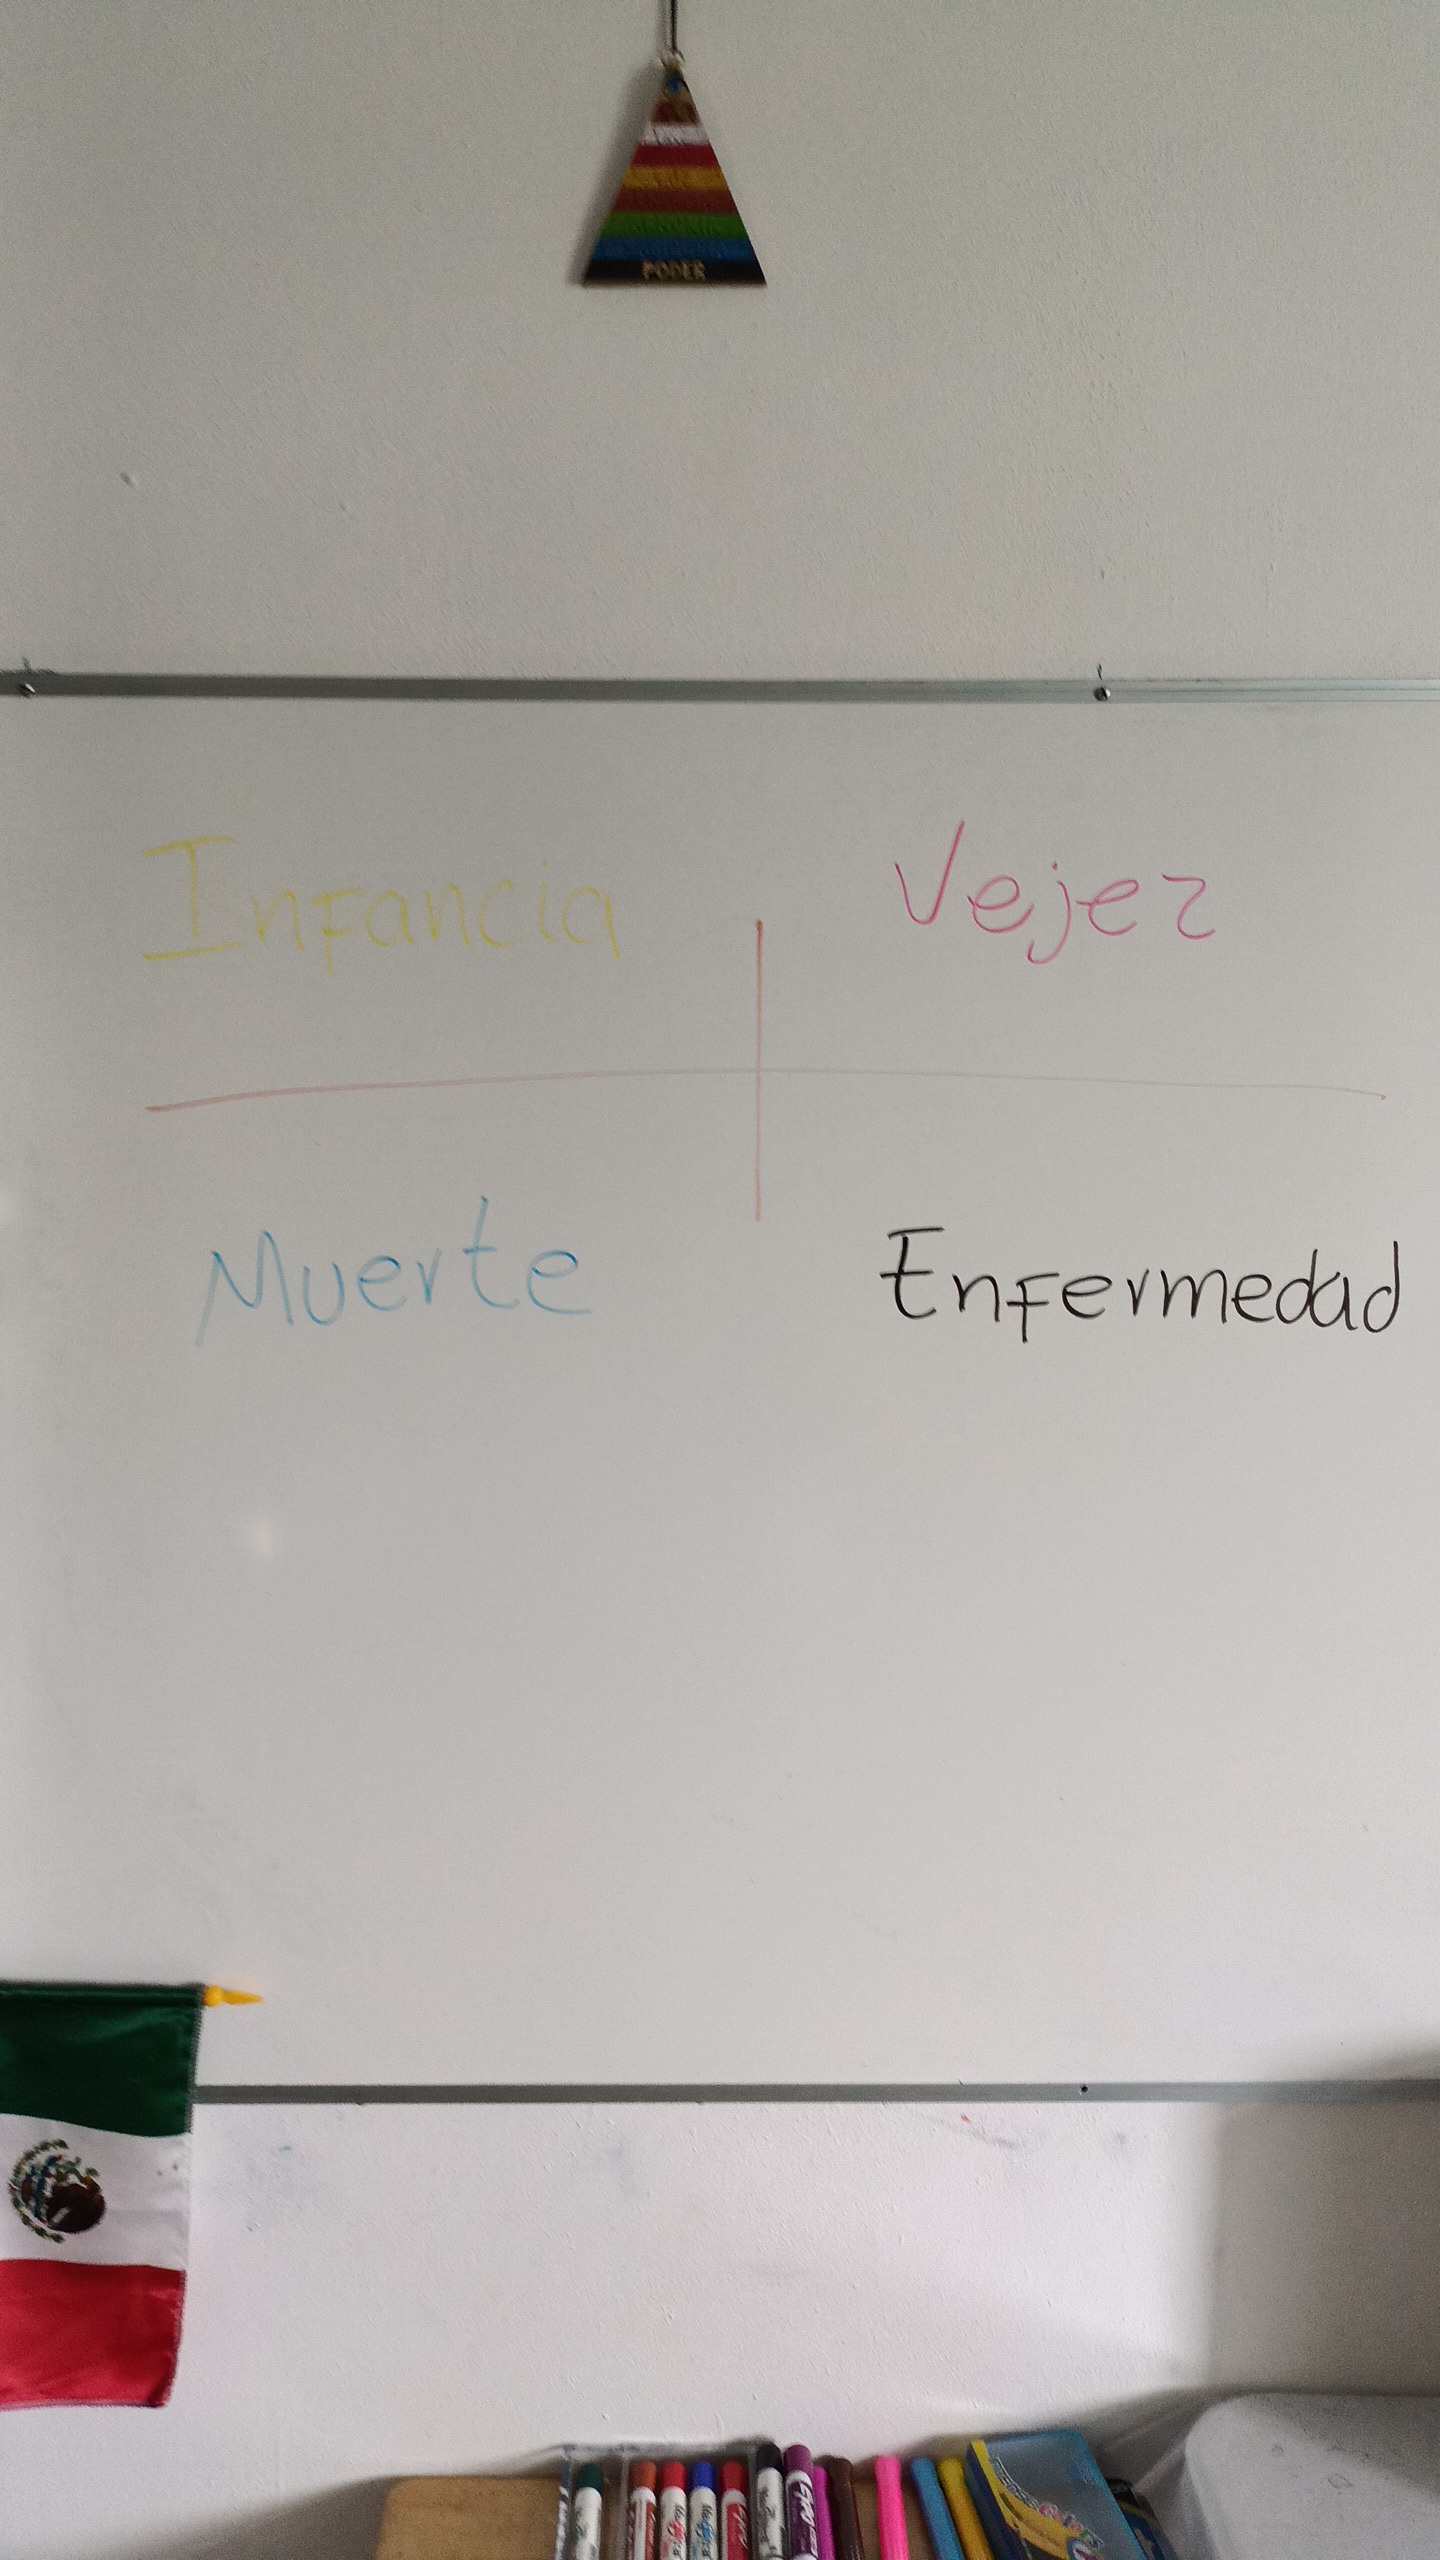 PODER
Infancia Vejez
Muerte Enfermedad
EXPO